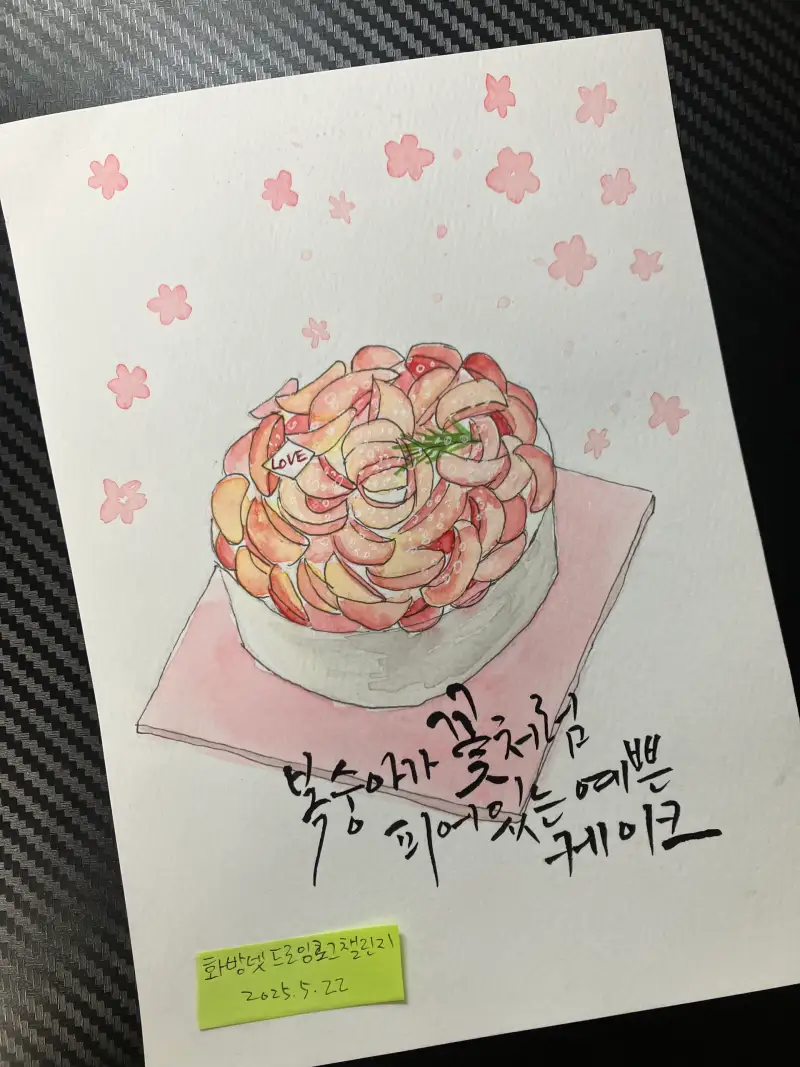 LOVE
복숭아가 꽃처럼
피어있는 예쁜
케이크
화방넷 드로잉로그챌린지
2025.5.22